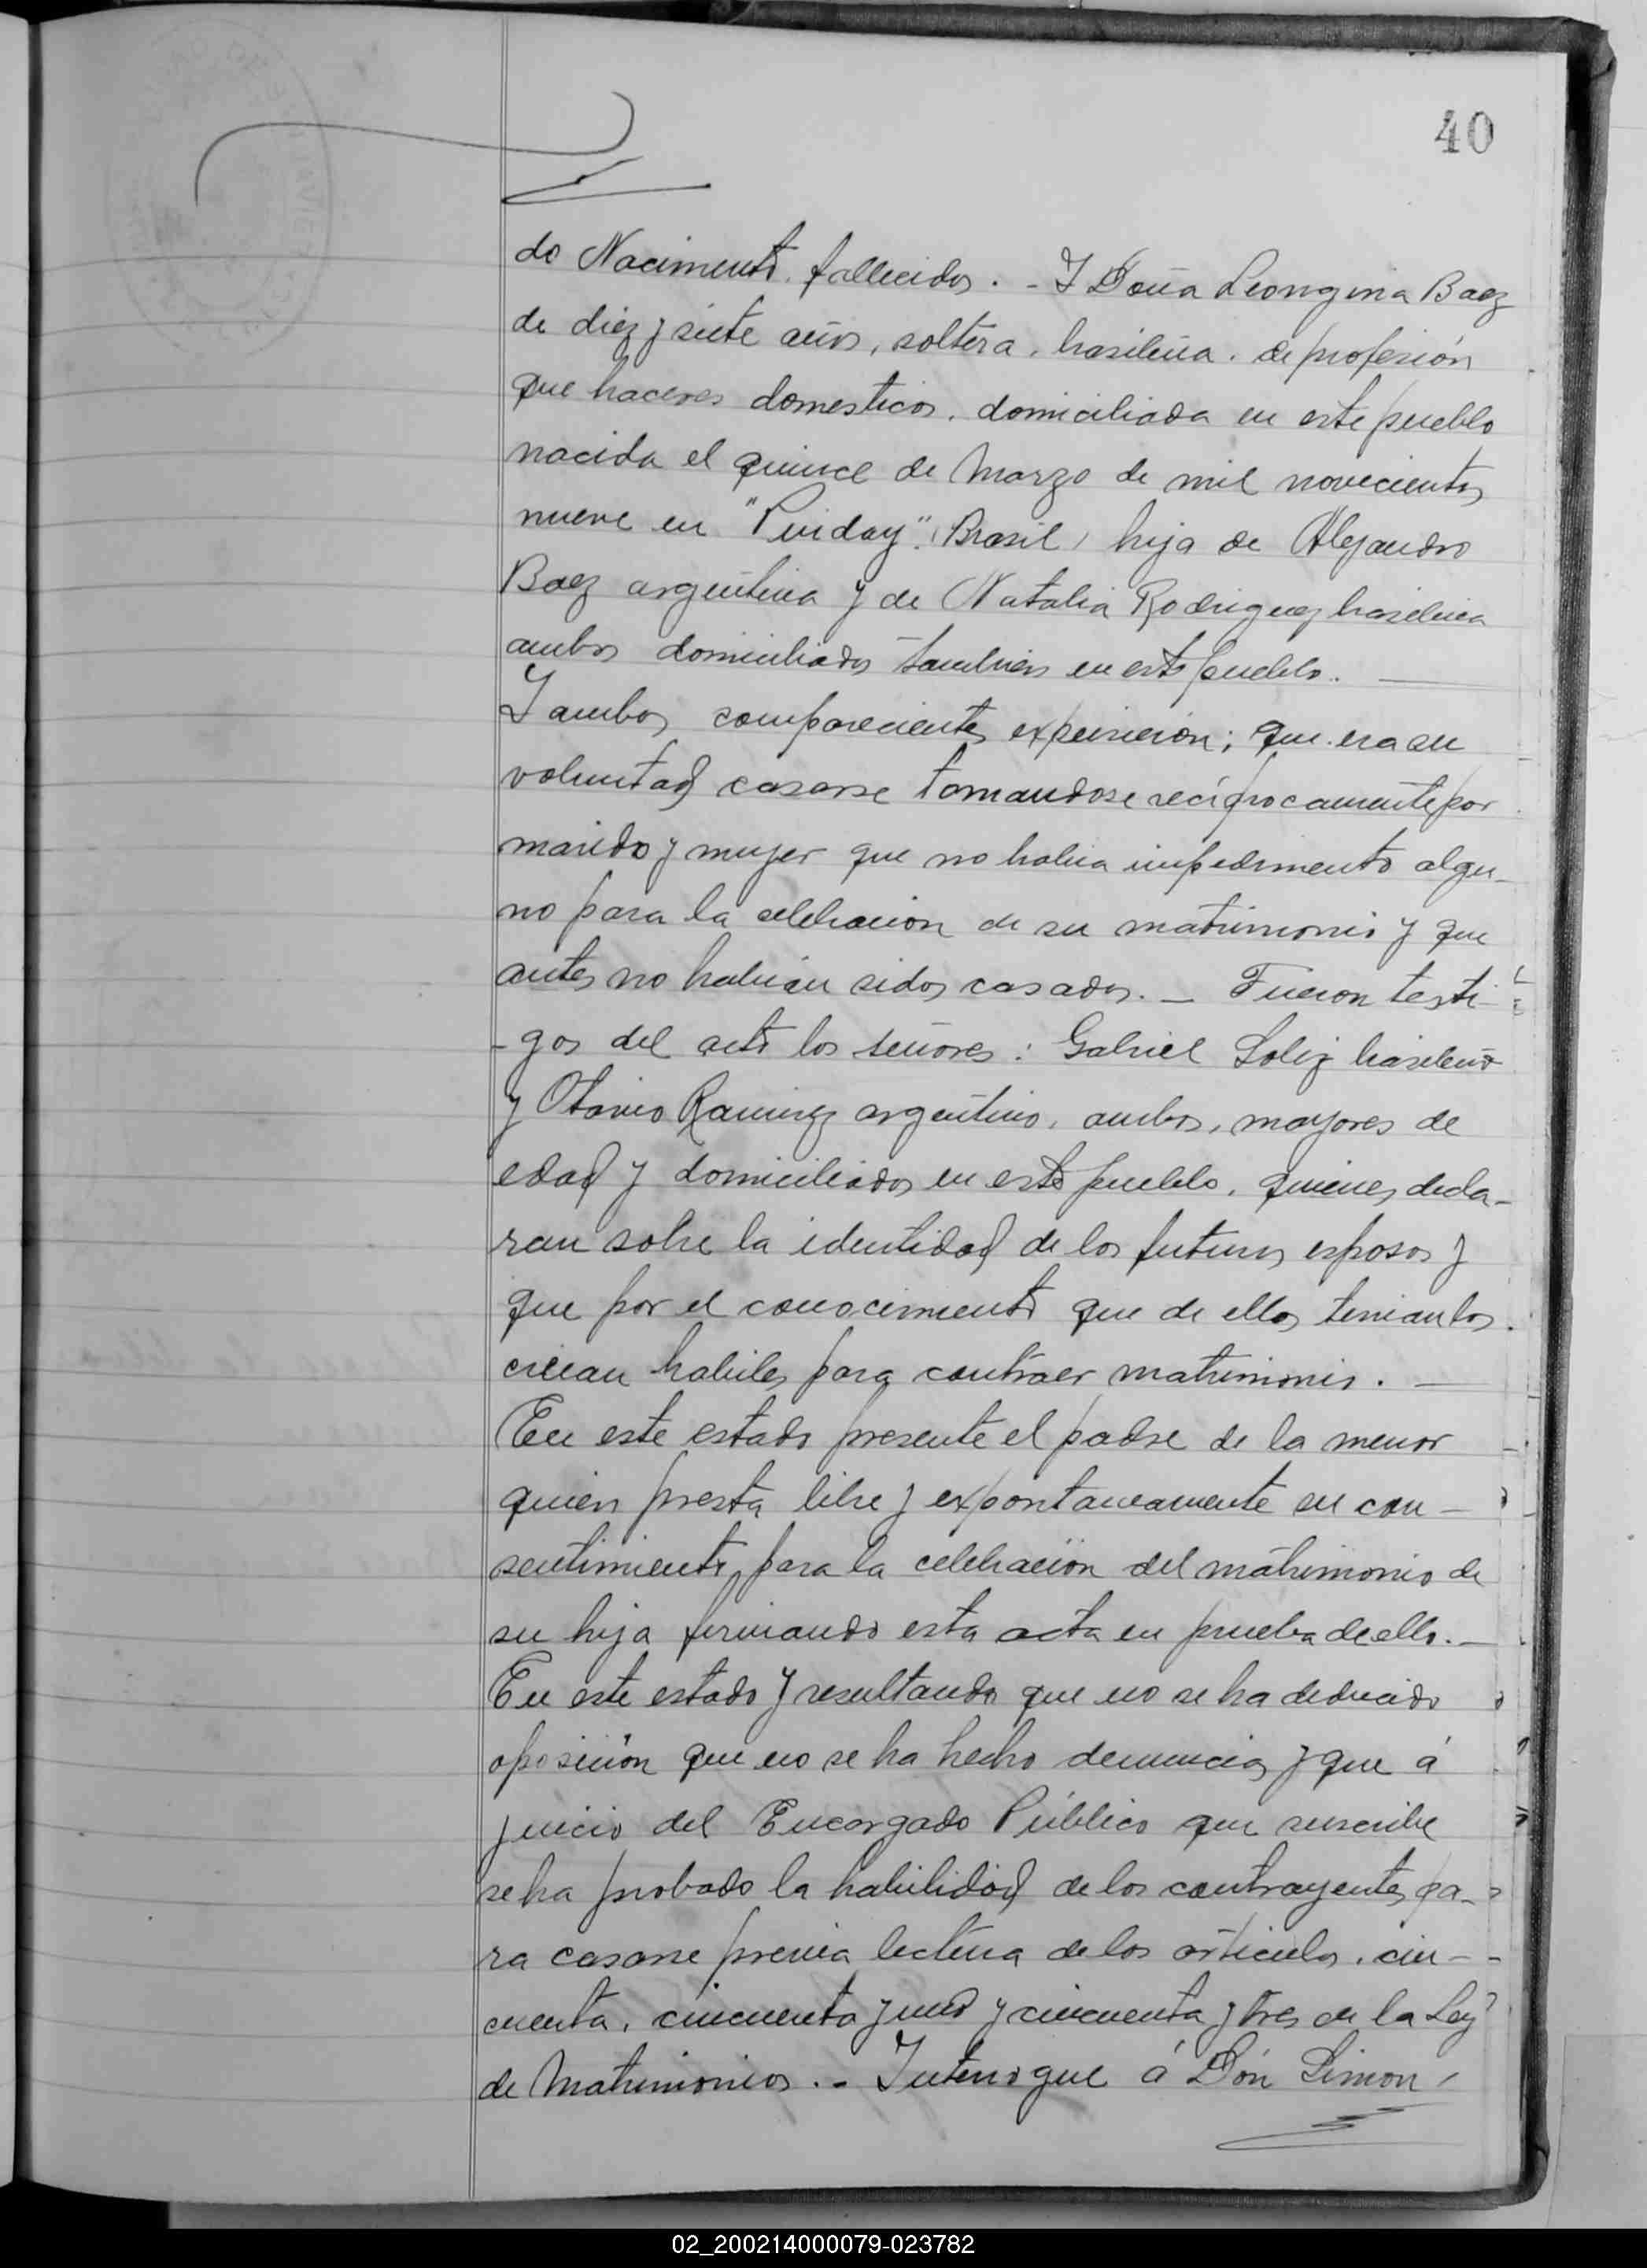 40
do Nacimento. fallecidos. - Y Doña Leongina Baez
de diez y siete años, soltera, brasileña. de profesión
que haceres domesticos. domiciliada en este pueblo
nacida el quince de Marzo de mil novecientos
nueve en " " (Brasil) hija de Alejandro
Baez argentina y de Natalia Rodriguez brasilera
ambos domiciliados tambien en este pueblo.
Y ambos comparecientes expusieron; que era su
voluntad casarse tomandose recíprocamente por
marido y mujer que no habia impedimento algu-
no para la celebracion de su matrimonio y que
antes no habian sidos casados. - Fueron testi-
-gos del acto los señores: Gabriel Soliz brasileño
y Otavio Ramirez argentino, ambos, mayores de
edad y domiciliados en este pueblo, quienes decla-
ran sobre la identidad de los futuros esposos y
que por el conocimiento que de ellos tenian los
creian habiles para contraer matrimonio.
En este estado presente el padre de la menor
quien presta libre y expontaneamente su con-
sentimiento para la celebración del matrimonio de
su hija firmando esta acta en prueba de ello.-
En este estado y resultando que no se ha deducido
oposición que no se ha hecho denuncias y que á
juicio del Encargado Público que suscribe
se ha probado la habilidad de los contrayentes pa-
ra casarse previa lectura de los artículos. cin-
cuenta, cincuenta y uno y cincuenta y tres de la Ley
de Matrimonios. - Interrogue á Dón Simon
02_200214000079-023782